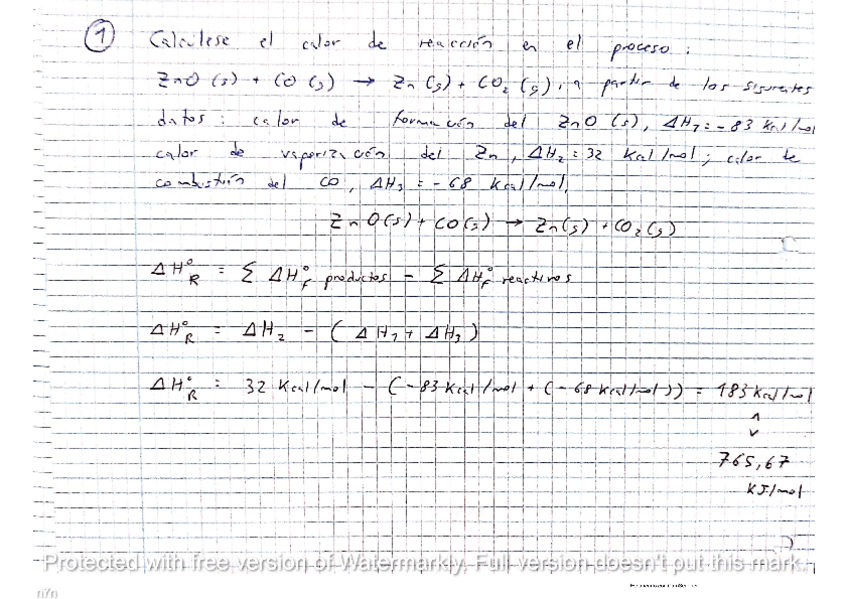 1 Calculese el calor de reacción en el proceso:
ZnO (s) + CO (g) → Zn (g) + CO₂ (g), a partir de los siguientes
datos: calor de formación del ZnO (s), ΔH₁ = -83 Kcal/mol
calor de vaporización del Zn, ΔH₂ = 32 Kcal/mol; calor de
combustión del CO, ΔH₃ = -68 Kcal/mol.
ZnO(s) + CO(g) → Zn(g) + CO₂(g)
ΔH°R = Σ ΔH°f productos - Σ ΔH°f reactivos
ΔH°R = ΔH₂ - (ΔH₁ + ΔH₃)
ΔH°R = 32 Kcal/mol - (-83 Kcal/mol + (-68 Kcal/mol)) = 183 Kcal/mol
765,67
KJ/mol
Protected with free version of Watermarkly. Full version doesn't put this mark.